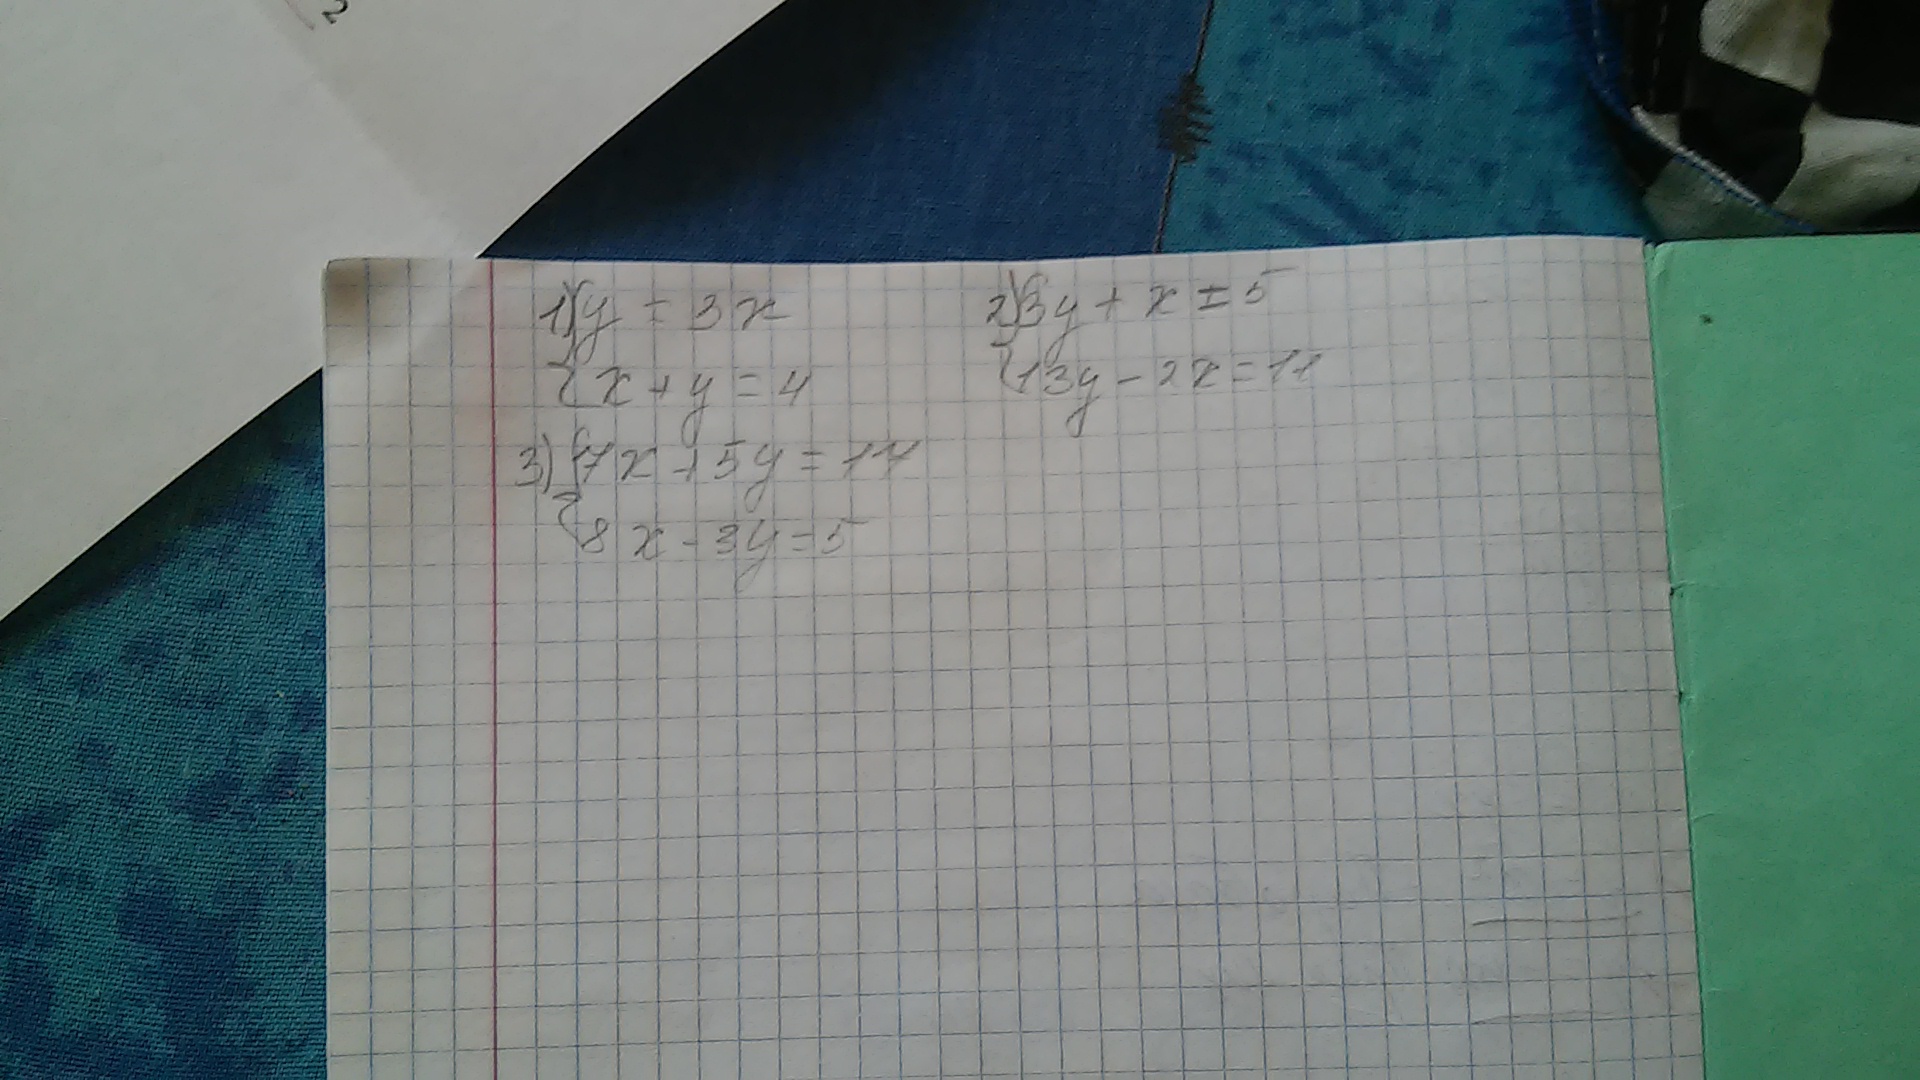 2
1) { y = 3x
{ x + y = 4
2) { 3y + x = 5
{ 13y - 2x = 11
3) { 7x + 5y = 17
{ 8x - 3y = 5